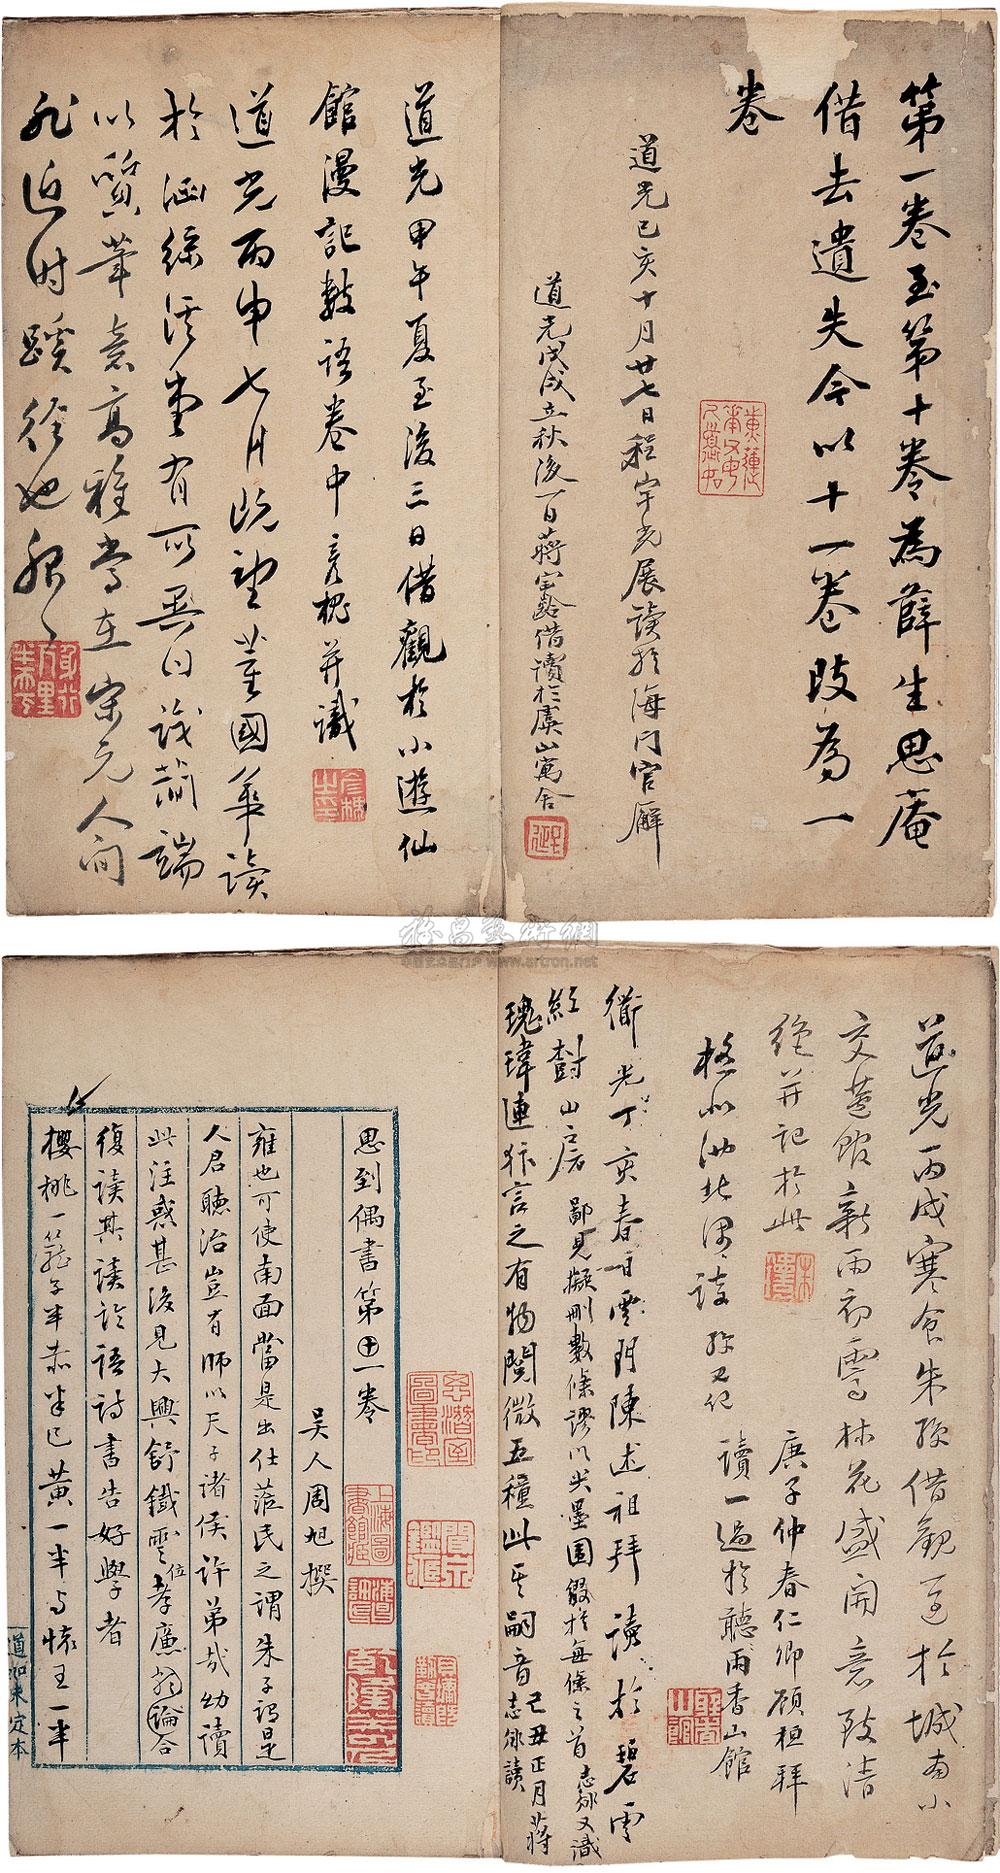 第一卷至第十卷為薛生思菴
借去遺失今以十一卷改為一
卷
道光己亥十月廿七日程宇光展讀於海門官廨
道光戊戌立秋後一日蔣寶齡借讀於虞山寓舍
道光甲午夏至後三日借觀於小遊仙
館漫記數語卷中 彥槐并識
道光丙申七月既望董國華讀
於涵綠溪堂有所異日識簡端
以質葦意高雅當在宋元人間
非近时蹊徑也
道光丙戌寒食朱 借觀 於城南小
交蘆館新雨初霽林花盛開意致清
絶并記於此
庚子仲春仁卿顧 拜
讀一過於聽雨香山館
衜光丁亥春日雲門陳述祖拜讀於碧雲
紅樹山房
鄙見擬刪數條謬以尖墨圈綴於每條之首 志 又識
瑰瑋連犿言之有物闡微五種此其嗣音
己丑正月蔣
志 讀
思到偶書第十一卷
吴人周旭撰
雍也可使南面當是出仕蒞民之謂朱子謂是
人君聽治豈有師以天子諸侯許弟哉幼讀
此注惑甚後見大興舒鐵雲位孝廉 論合
復讀其讀論語詩書告好學者
櫻桃一籠子半赤半已黃一半与懷王一半
道 未定本
上海圖書館藏
www.artron.net